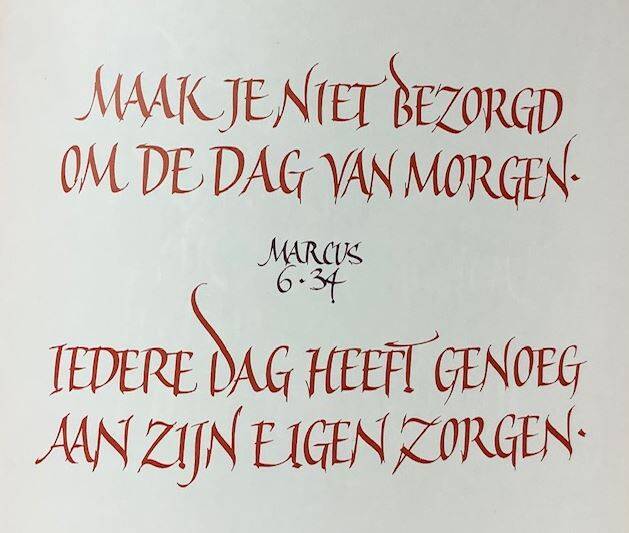 MAAK JE NIET BEZORGD
OM DE DAG VAN MORGEN·
MARCUS
6·34
IEDERE DAG HEEFT GENOEG
AAN ZIJN EIGEN ZORGEN·